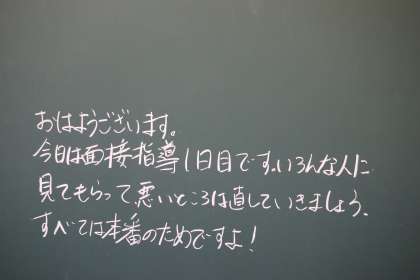 おはようございます。
今日は面接指導1日目です。いろんな人に
見てもらって悪いところは直していきましょう。
すべては本番のためですよ！